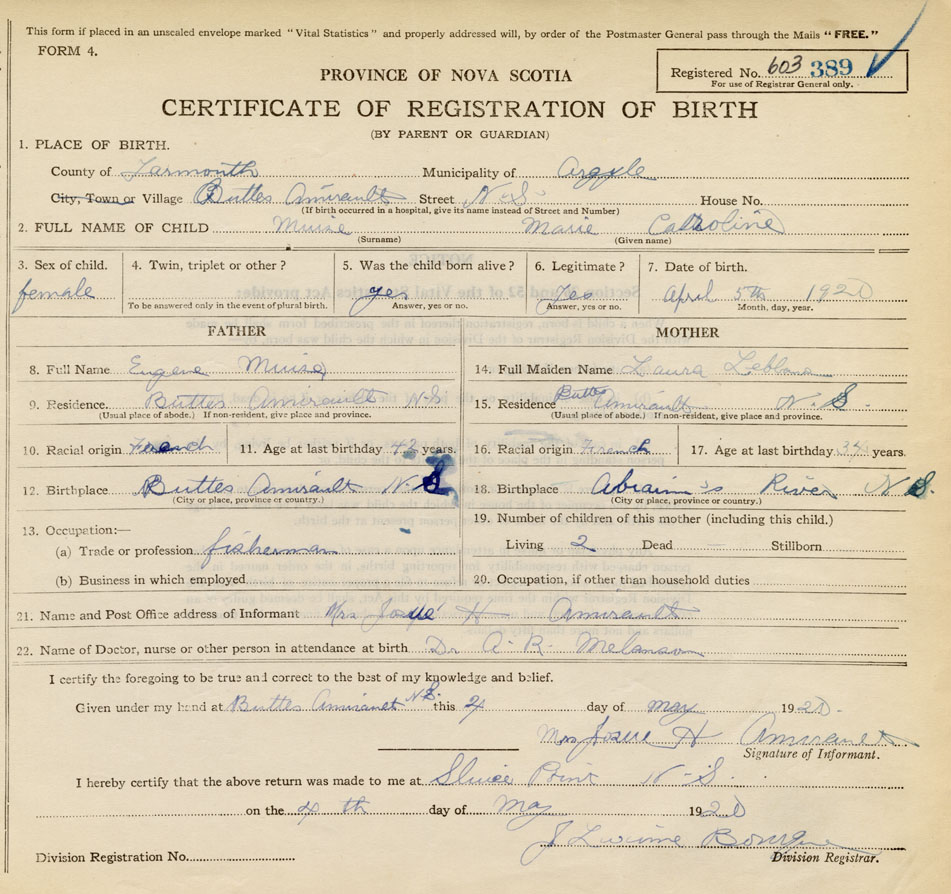 This form if placed in an unsealed envelope marked "Vital Statistics" and properly addressed will, by order of the Postmaster General pass through the Mails "FREE."
FORM 4.
Registered No. 603 389
For use of Registrar General only.
PROVINCE OF NOVA SCOTIA
CERTIFICATE OF REGISTRATION OF BIRTH
(BY PARENT OR GUARDIAN)
1. PLACE OF BIRTH.
County of Yarmouth Municipality of Argyle
City, Town or Village Buttes Amirault Street N S House No.
(If birth occurred in a hospital, give its name instead of Street and Number)
2. FULL NAME OF CHILD Muise Marie Caroline
(Surname) (Given name)
3. Sex of child. 4. Twin, triplet or other? 5. Was the child born alive? 6. Legitimate? 7. Date of birth.
female yes Yes April 5th 1920
To be answered only in the event of plural birth. Answer, yes or no. Answer, yes or no. Month, day, year.
FATHER MOTHER
8. Full Name Eugene Muise 14. Full Maiden Name Laura Leblanc
9. Residence Buttes Amirault N-S 15. Residence Buttes Amirault N. S.
(Usual place of abode.) If non-resident, give place and province. (Usual place of abode.) If non-resident, give place and province.
10. Racial origin French 11. Age at last birthday 42 years. 16. Racial origin French 17. Age at last birthday years.
12. Birthplace Buttes Amirault N. S 18. Birthplace Abram's River N S.
(City or place, province or country.) (City or place, province or country.)
13. Occupation:— 19. Number of children of this mother (including this child.)
(a) Trade or profession fisherman Living 2 Dead Stillborn
(b) Business in which employed 20. Occupation, if other than household duties
21. Name and Post Office address of Informant Mrs Josué H Amirault
22. Name of Doctor, nurse or other person in attendance at birth Dr A. R. Melanson
I certify the foregoing to be true and correct to the best of my knowledge and belief.
Given under my hand at Buttes Amirault N S. this 4 day of may 1920.
Mrs Josue H Amirault
Signature of Informant.
I hereby certify that the above return was made to me at Sluice Point N-S.
on the 4 th day of May 1920
J Bourque
Division Registration No. Division Registrar.